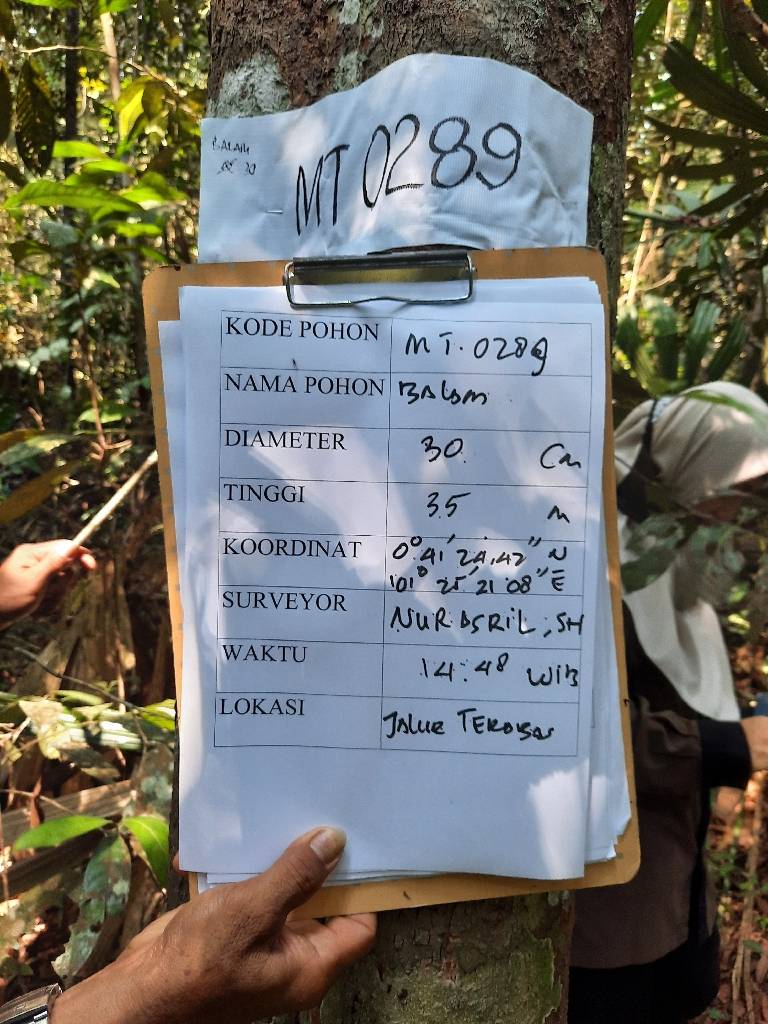 BALAM
30
MT 0289
KODE POHON MT. 0289
NAMA POHON BALAM
DIAMETER 30 Cm
TINGGI 35 m
KOORDINAT 0° 41' 24,42" N
101° 25' 21.08" E
SURVEYOR NUR ASRIL, SH
WAKTU 14:48 WIB
LOKASI JALUR TERABAS